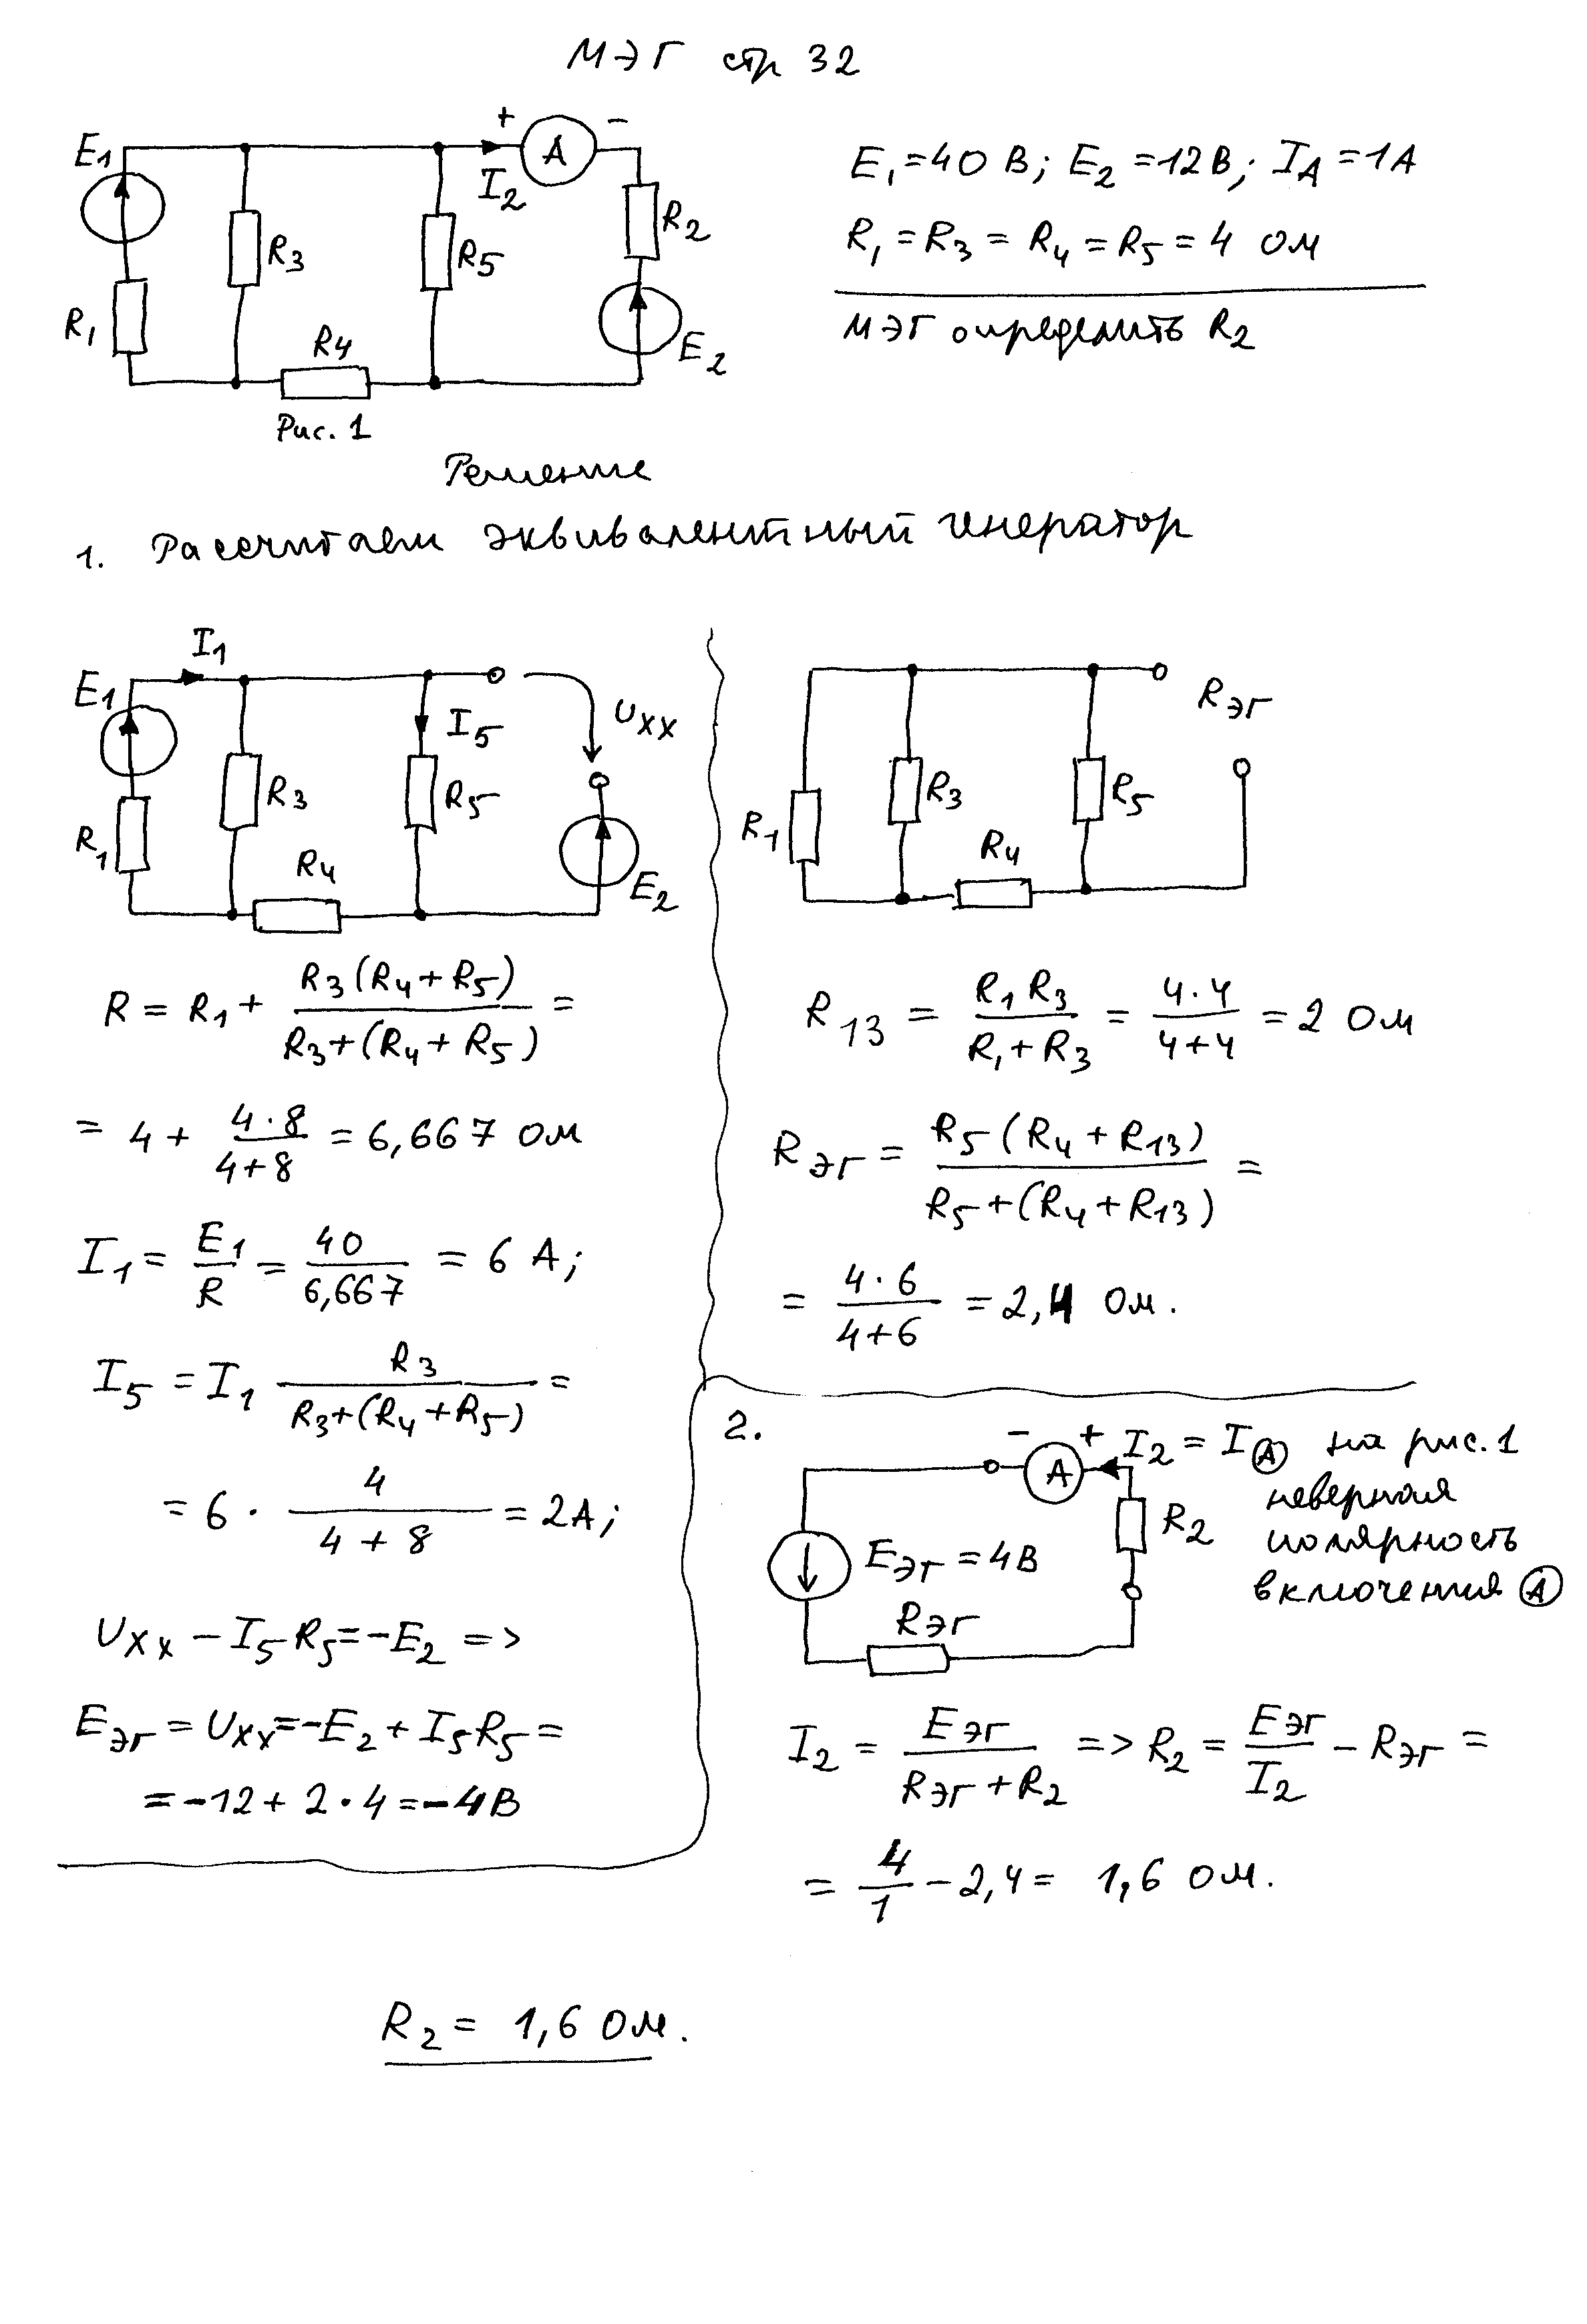 МЭГ стр 32
E1 + A - I2 R3 R5 R2 R1 R4 E2
Рис. 1
E₁ = 40 В; E₂ = 12В; I_A = 1А
R₁ = R₃ = R₄ = R₅ = 4 Ом
МЭГ определить R₂
Решение
1. Рассчитаем эквивалентный генератор
I1 E1 I5 Uхх R3 R5 R1 R4 E2
R = R₁ + R₃(R₄ + R₅) / R₃+(R₄ + R₅) =
= 4 + 4·8 / 4+8 = 6,667 Ом
I₁ = E₁ / R = 40 / 6,667 = 6 А;
I₅ = I₁ R₃ / R₃+(R₄+R₅) =
= 6 · 4 / 4 + 8 = 2А;
Uхх – I₅ R₅ = -E₂ =>
Eэг = Uхх = -E₂ + I₅R₅ =
= -12 + 2·4 = -4В
Rэг R3 R5 R1 R4
R₁₃ = R₁ R₃ / R₁+R₃ = 4·4 / 4+4 = 2 Ом
Rэг = R₅(R₄ + R₁₃) / R₅+(R₄+R₁₃) =
= 4·6 / 4+6 = 2,4 Ом.
2.
- A + I₂ = I(A) на рис. 1
неверная
полярность
включения (A)
R2
Eэг = 4В
Rэг
I₂ = Eэг / Rэг + R₂ => R₂ = Eэг / I₂ – Rэг =
= 4 / 1 – 2,4 = 1,6 Ом.
R₂ = 1,6 Ом.